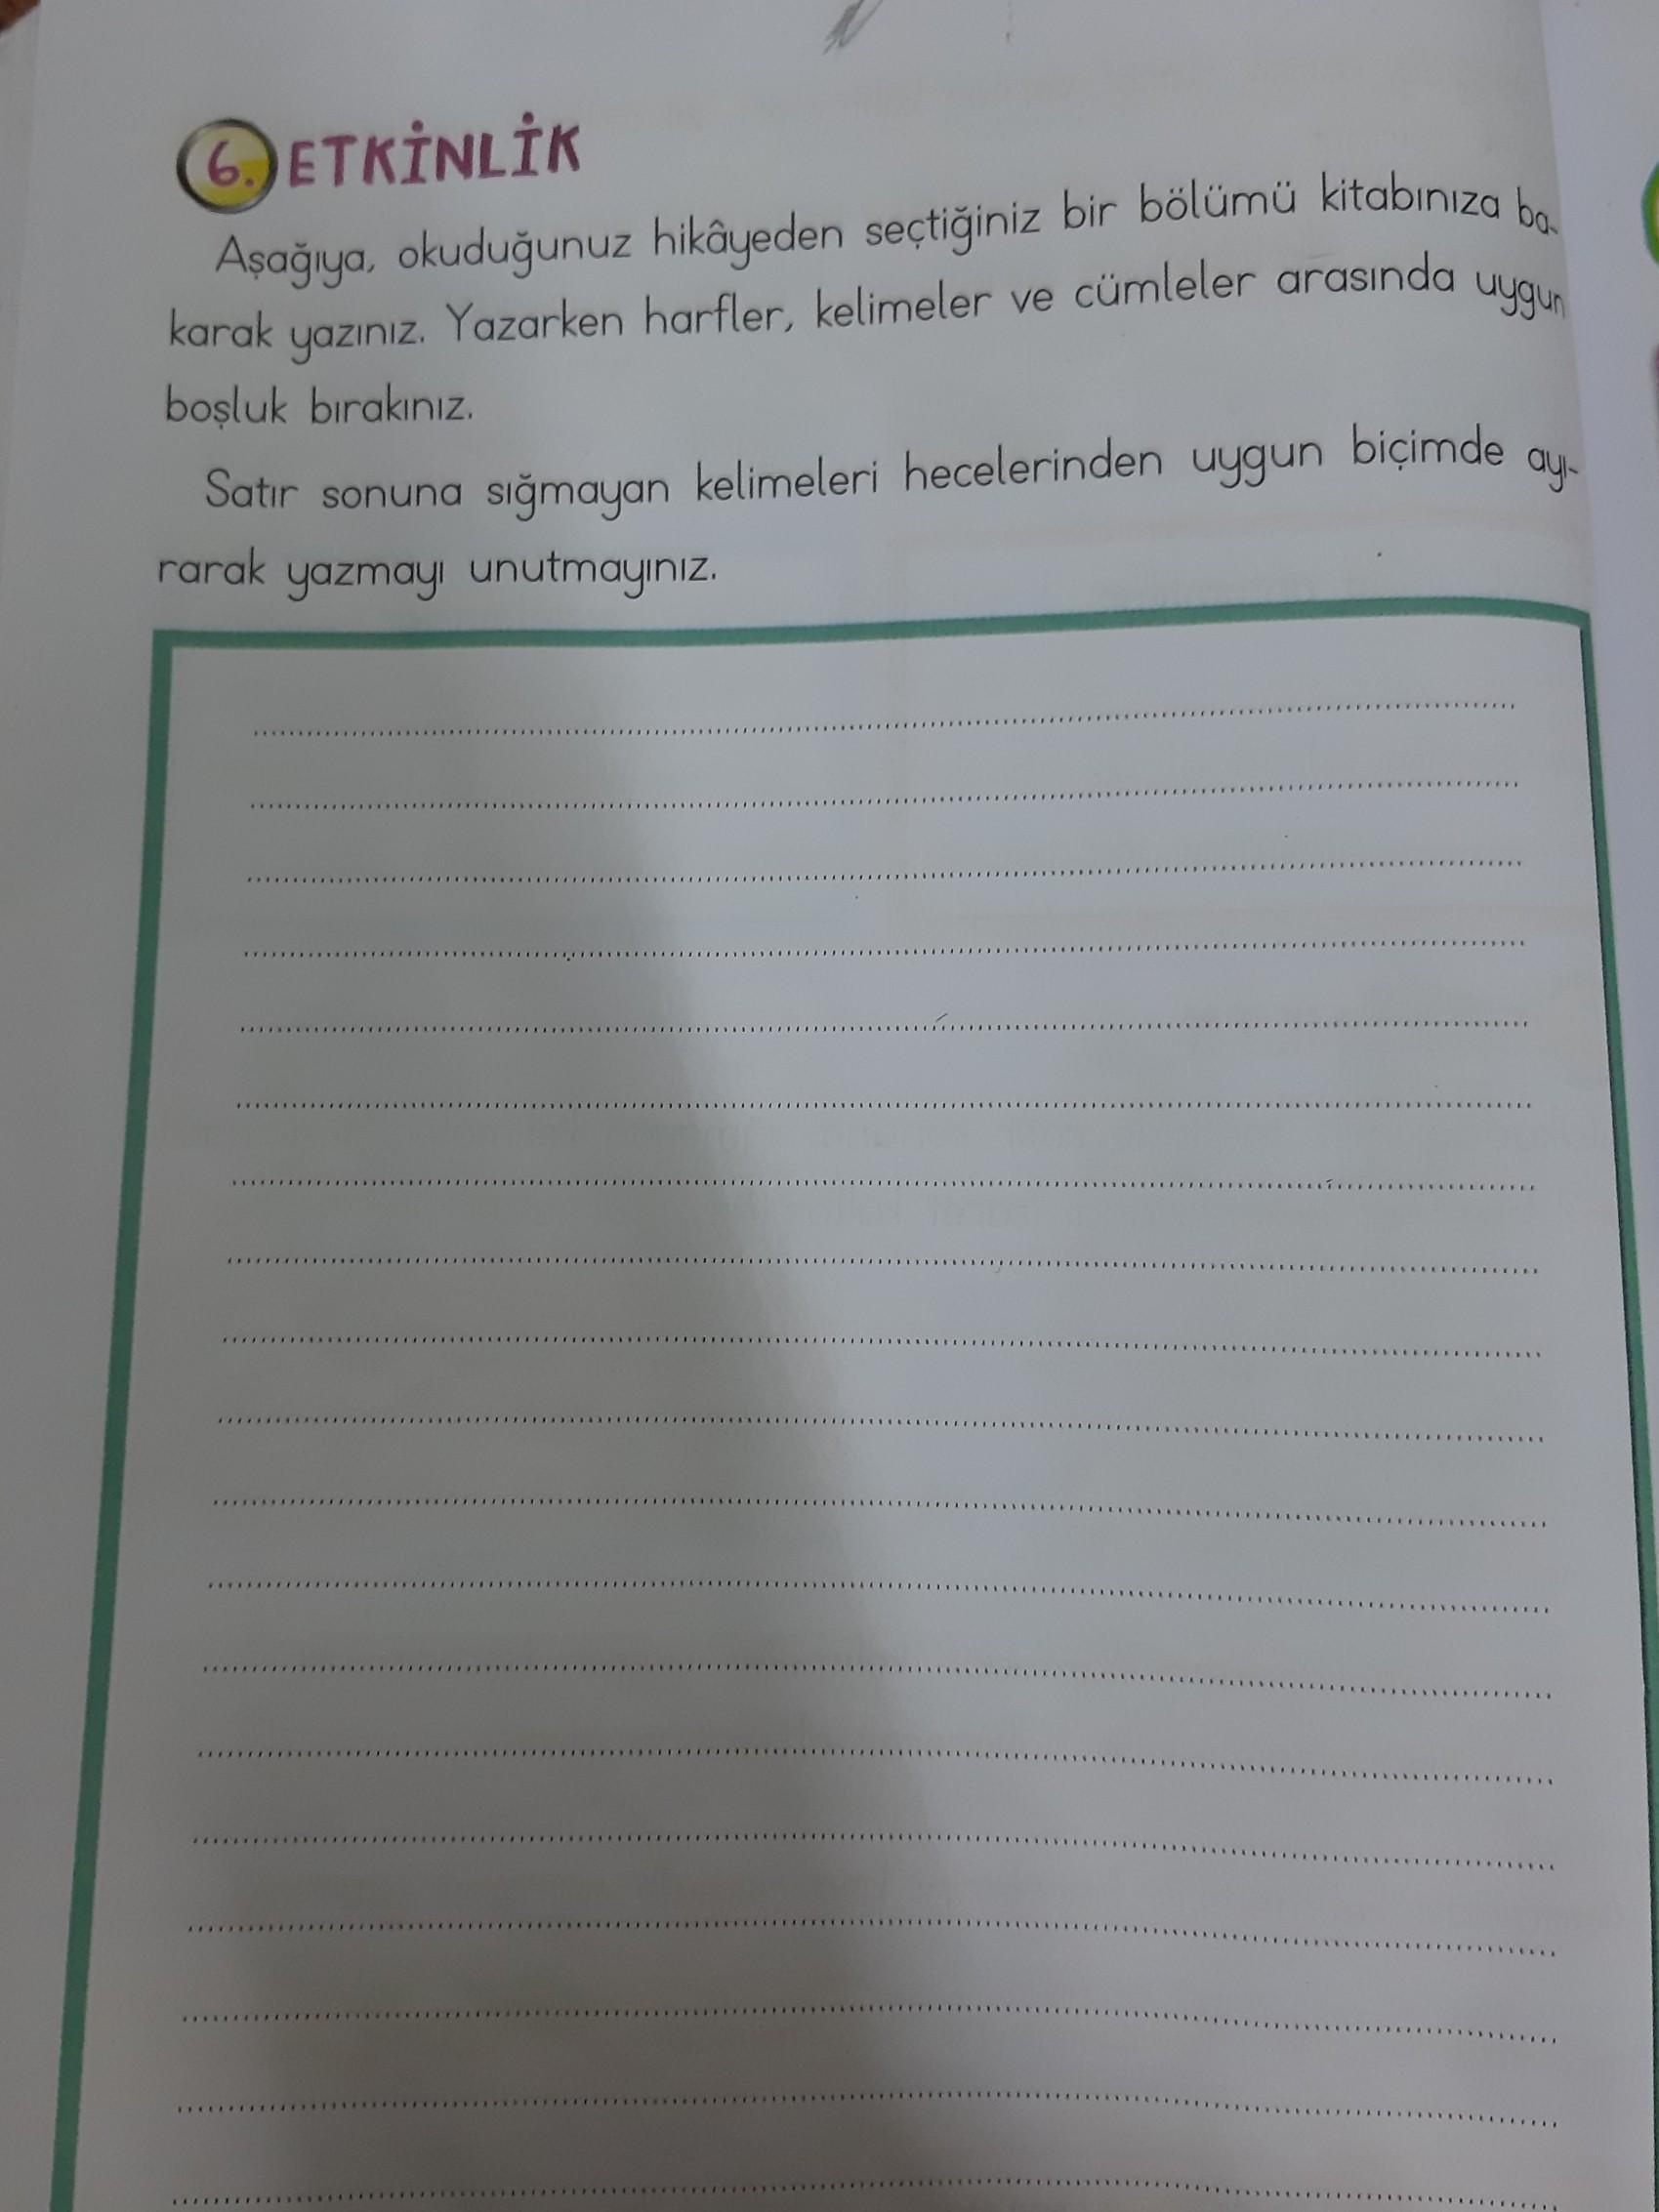 6. ETKİNLİK
Aşağıya, okuduğunuz hikâyeden seçtiğiniz bir bölümü kitabınıza ba-
karak yazınız. Yazarken harfler, kelimeler ve cümleler arasında uygun
boşluk bırakınız.
Satır sonuna sığmayan kelimeleri hecelerinden uygun biçimde ayı-
rarak yazmayı unutmayınız.